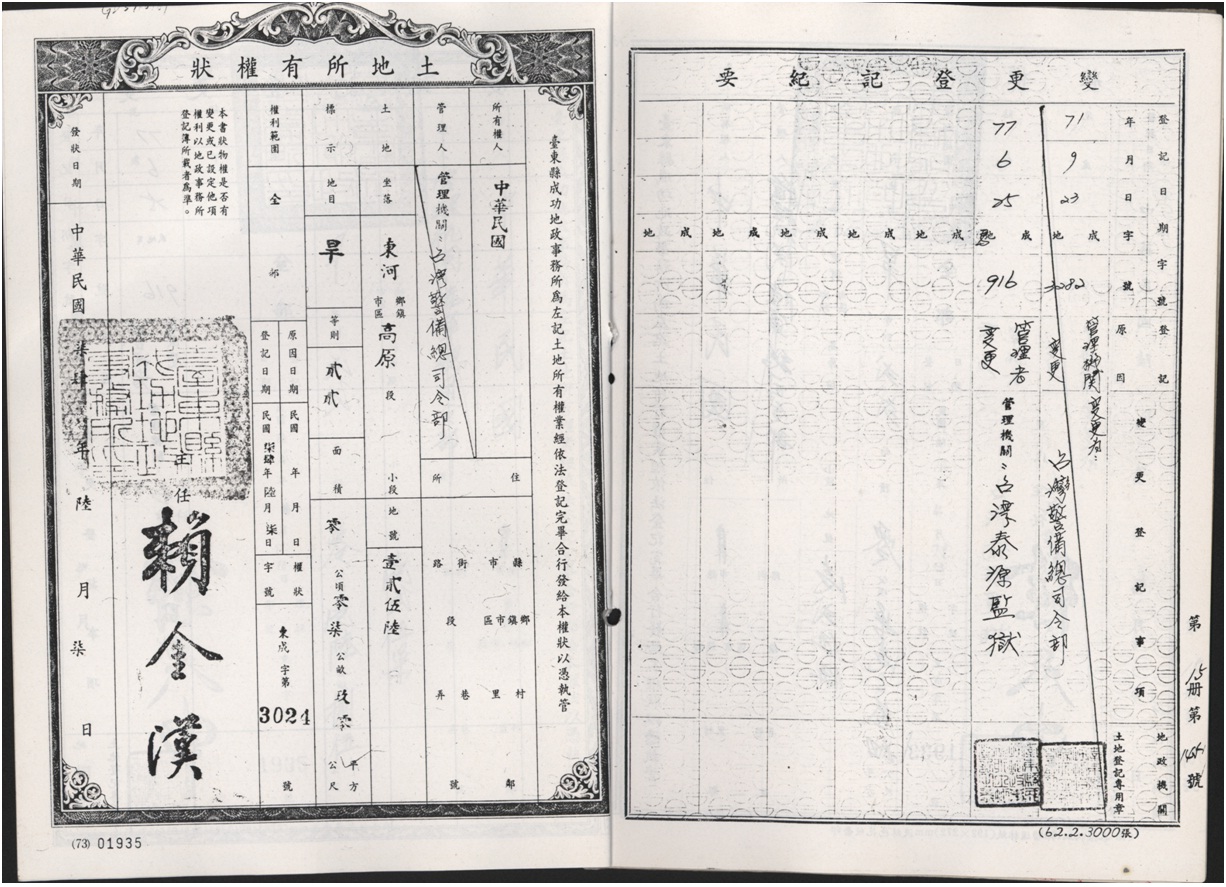 土地所有權狀
臺東縣成功地政事務所為左記土地所有權業經依法登記完畢合行發給本權狀以憑執管
所有權人
中華民國
住
所
縣
市
街
路
鄉鎮市區
段
村
里
巷
弄
鄰
號
管理人
管理機關：台灣警備總司令部
土地
標示
坐落
東河
鄉鎮
市區
高原
段
小段
地號
壹貳伍陸
地目
旱
等則
貳貳
面積
零
公頃
零柒
公畝
玖零
平方
公尺
權利範圍
全
部
原因日期
民國
年
月
日
登記日期
民國
柒肆年
陸月
柒日
權狀
字號
東成
字第
3024
號
本書狀物權是否有
變更或已設定他項
權利以地政事務所
登記簿所載者為準。
主任
賴金漢
發狀日期
中華民國柒肆年陸月柒日
(73) 01935
變更登記紀要
登記日期字號
年
月
日
字
號
登記
原因
變更登記事項
地政機關
土地登記專用章
71
9
23
成
地
3282
管理機關
變更
變更為：
台灣警備總司令部
77
6
25
成
地
916
管理者
變更
管理機關：台灣泰源監獄
成
地
成
地
成
地
成
地
成
地
第15册第
號
(62.2.3000張)